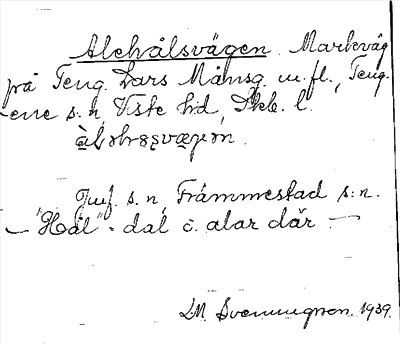 Alehålsvägen. Markväg
på Teng. Lars Månsg. m. fl., Teng-
ene s:n, Viste hd, Skb. l.
Juf. s. n, Främmestad s:n.
— "Hål" - dal o. alar där —
L.M. Svenungson. 1939.